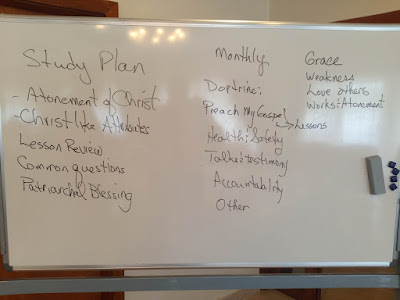 Study Plan
- Atonement of Christ
- Christlike Attributes
Lesson Review
Common questions
Patriarchal Blessing
Monthly
Doctrine:
Preach My Gospel
→ Lessons
Health & Safety
Talks & testimony
Accountability
Other
Grace
Weakness
Love others
Works & Atonement